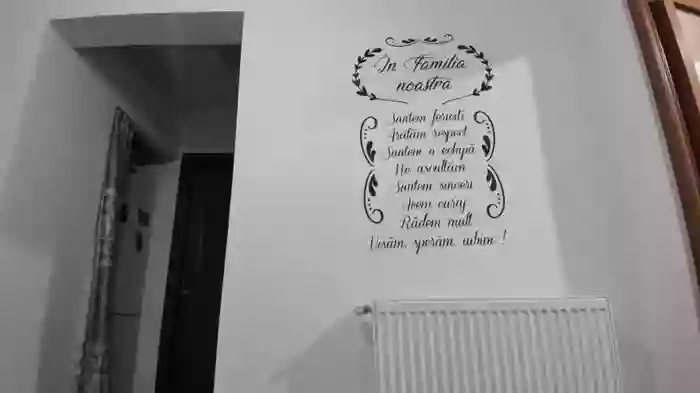 În Familia
noastră
Suntem fericiți
Arătăm respect
Suntem o echipă
Ne ascultăm
Suntem sinceri
Avem curaj
Râdem mult
Visăm, sperăm, iubim !